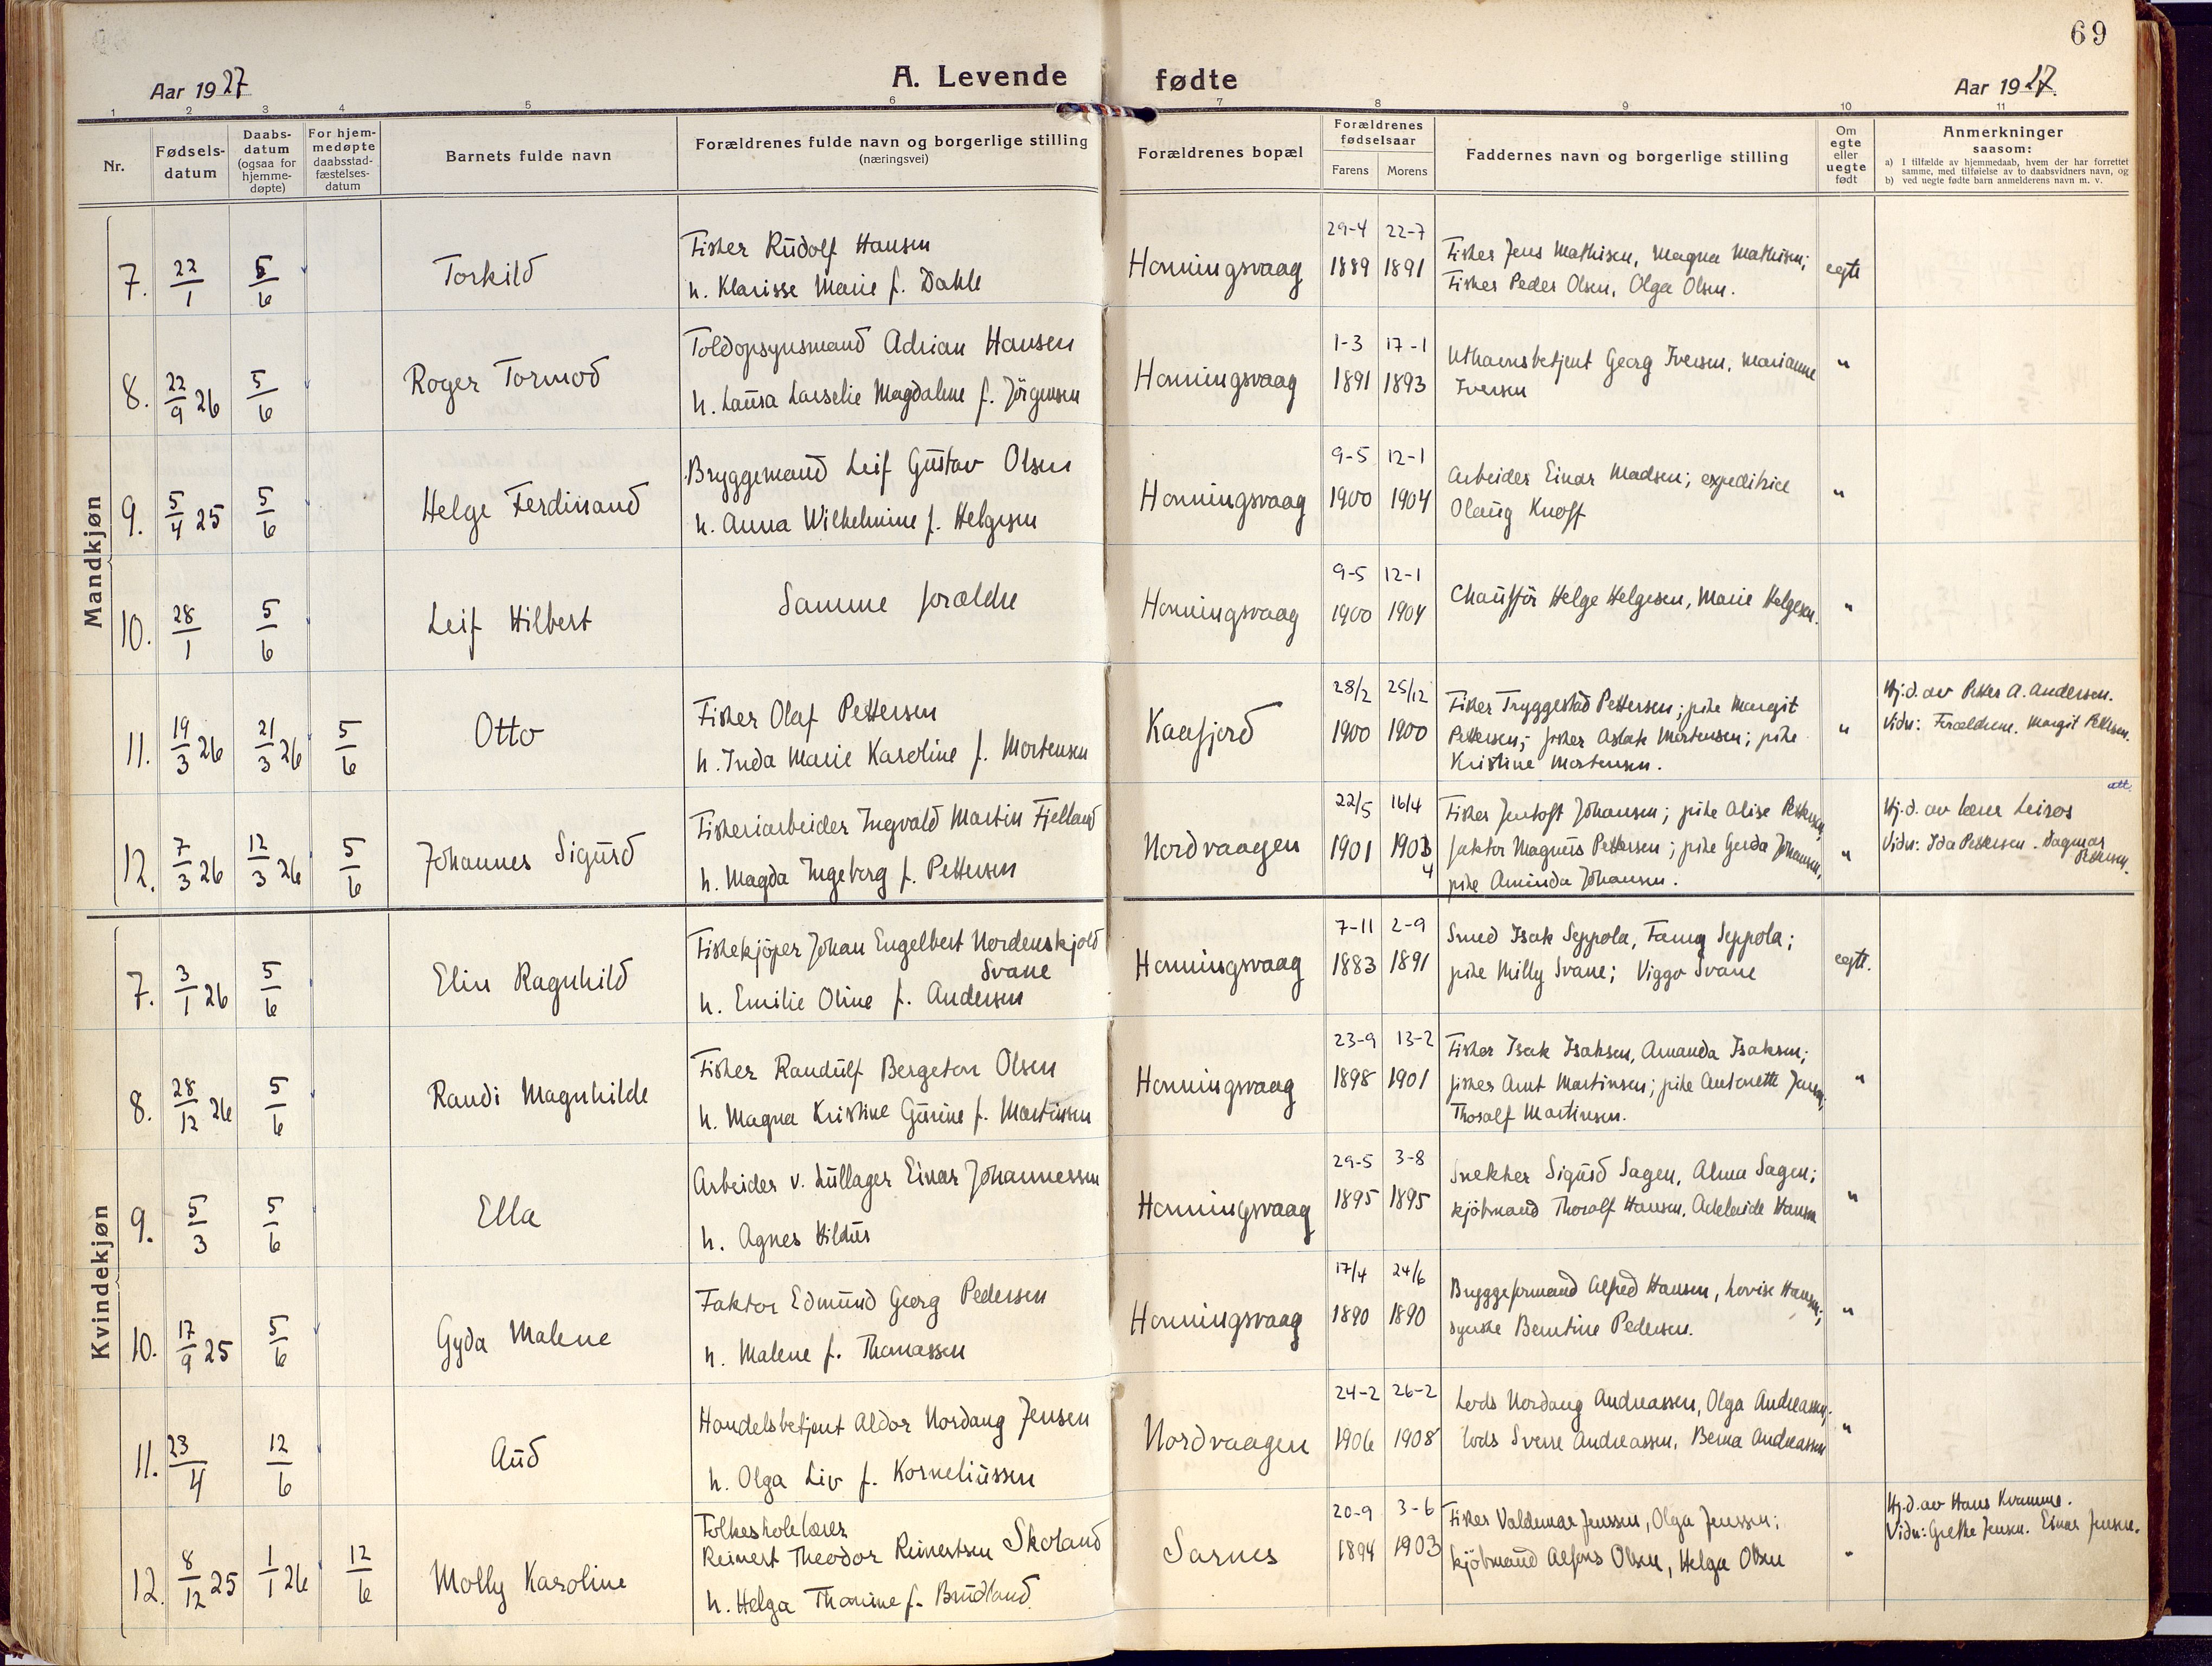 69
Aar 1927
A. Levende fødte
Aar 1927.
1 2 3 4 5 6 7 8 9 10 11
Nr.
Fødsels-
datum
Daabs-
datum
(ogsaa for
hjemme-
døpte)
For hjem-
medøpte
daabsstad-
fæstelses-
datum
Barnets fulde navn
Forældrenes fulde navn og borgerlige stilling
(næringsvei)
Forældrenes bopæl
Forældrenes
fødselsaar
Farens Morens
Faddernes navn og borgerlige stilling
Om
egte
eller
uegte
født
Anmerkninger
saasom:
a) I tilfælde av hjemmedaab, hvem der har forrettet
samme, med tilføielse av to daabsvidners navn, og
b) ved uegte fødte barn anmelderens navn m. v.
Mandkjøn
7. 22/1 5/6 Torkild
Fisker Rudolf Hansen
h. Klarisse Marie f. Dahle
Honningsvaag
29-4 22-7
1889 1891
Fisker Jens Mathisen, Magna Mathisen;
Fisker Peder Olsen, Olga Olsen.
egte
8. 22/9 26 5/6 Roger Tormod
Toldopsynsmand Adrian Hansen
h. Laura Larselie Magdalene f. Jörgensen
Honningsvaag
1-3 17-1
1891 1893
Uthavnsbetjent Georg Iversen, Marianne
Iversen
"
9. 5/4 25 5/6 Helge Ferdinand
Bryggemand Leif Gustav Olsen
h. Anna Wilhelmine f. Helgesen
Honningsvaag
9-5 12-1
1900 1904
Arbeider Einar Madsen; expeditrice
Olaug Knoff
"
10. 28/1 5/6 Leif Hilbert
Samme forældre
Honningsvaag
9-5 12-1
1900 1904
Chaufför Helge Helgesen, Marie Helgesen.
"
11. 19/3 26 21/3 26 5/6 Otto
Fisker Olaf Pettersen
h. Inda Marie Karoline f. Mortensen
Kaafjord
28/2 25/12
1900 1900
Fisker Tryggestad Pettersen; pike Margit
Pettersen; fisker Aslak Mortensen; pike
Kristine Mortensen.
"
Hj.d. av Petter A. Andersen.
Vidn: Forældrene. Margit Pettersen.
12. 7/3 26 12/3 26 5/6 Johannes Sigurd
Fiskeriarbeider Ingvald Martin Fjelland
h. Magda Ingeborg f. Pettersen
Nordvaagen
22/5 16/4
1901 1903
4
Fisker Jentoft Johansen; pike Alise Pettersen;
faktor Magnus Pettersen; pike Gerda Johansen,
pike Aminda Johansen.
"
att.
Hj.d. av lærer Leiros
Vidn: Ida Pettersen. Dagmar
Pettersen.
Kvindekjøn
7. 3/1 26 5/6 Elin Ragnhild
Fiskekjöper Johan Engelbert Nordenskjold
Svane
h. Emilie Oline f. Andersen
Honningsvaag
7-11 2-9
1883 1891
Smed Isak Seppola, Fanny Seppola;
pike Milly Svane; Viggo Svane
egte.
8. 28/12 26 5/6 Randi Magnhilde
Fisker Randulf Bergeton Olsen
h. Magna Kristine Gurine f. Martinsen
Honningsvaag
23-9 13-2
1898 1901
Fisker Isak Isaksen, Amanda Isaksen;
fisker Arnt Martinsen; pike Antonette Jensen;
Thoralf Martinsen.
"
9. 5/3 5/6 Ella
Arbeider v. kullager Einar Johannessen
h. Agnes Hildur
Honningsvaag
29-5 3-8
1895 1895
Snekker Sigurd Sagen, Alma Sagen;
kjöbmand Thoralf Hansen, Adelaide Hansen
"
10. 17/9 25 5/6 Gyda Malene
Faktor Edmund Georg Pedersen
h. Malene f. Thomassen
Honningsvaag
17/4 24/6
1890 1890
Bryggeformand Alfred Hansen, Lovise Hansen;
syerske Berntine Pedersen.
"
11. 23/4 12/6 Aud
Handelsbetjent Aldor Nordang Jensen
h. Olga Liv f. Korneliussen
Nordvaagen
24-2 26-2
1906 1908
Lods Nordang Andreassen, Olga Andreassen,
lods Sverre Andreassen, Berna Andreassen
"
12. 8/12 25 1/1 26 12/6 Molly Karoline
Folkeskolelærer
Reinert Theodor Reinertsen Skoland
h. Helga Thomine f. Brudland.
Sarnes
20-9 3-6
1894 1903
Fisker Valdemar Jenssen, Olga Jenssen;
kjöbmand Alfons Olsen, Helga Olsen
"
Hj.d. av Hans Kvamme.
Vidn: Grethe Jensen. Einar Jensen.